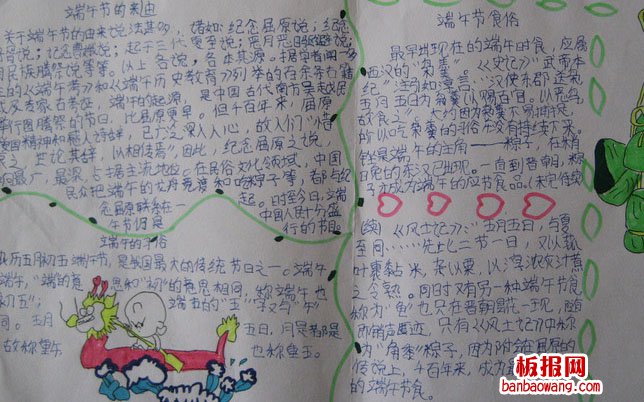 端午节的来由
关于端午节的由来说法甚多，诸如：纪念屈原说；纪念
说；起于三代夏至说；恶月恶日驱避说，
民族腾祭说等等。以上各说，各本其源。据学者闻一多
的《端午考》和《端午历史教育》列举的百余条古籍
及专家考古考证，端午的起源，是中国古代南方吴越民
举行图腾祭的节日，比屈原更早。但千百年来，屈原
爱国精神和感人诗辞，已广泛深入人心，故人们“惜
哀之，世论其辞，以相传焉”因此，纪念屈原之说，
最广、最深，占据主流地位。在民俗文化领域，中国
民众把端午的龙舟竞渡和吃粽子等，都与纪
念屈原联系在一起。时至今日，端
午节仍是中国人民十分盛
行的节日
端午的习俗
农历五月初五端午节，是我国最大的传统节日之一。端午
端午，“端”的意思和“初”的意思相同，称“端午”也
初五”；端五的“五”字又与“午”
同。五月五日，月是都是
故称重午也称重五。
端午节食俗
最早出现在的端午时食，应属
西汉的“枭羹”。《史记》“武帝本
纪”注引如淳言：“汉使东郡送枭，
五月五日为枭羹以赐百官。以恶鸟，
故食之”大约因为枭不易捕捉，
所以吃枭羹的习俗没有持续下来。
倒是端午的主角——粽子，在稍
有晚的东汉已出现。一直到晋朝，粽
子才成为端午的应节食品。(未完待续
(续)《风土记》：“五月五日，与夏
至同……先此二节一日，又以菰
叶裹黏米，杂以粟，以淳浓灰汁煮
之令熟。”同时又有另一种端午节食
称为“龟”也只在晋朝昙花一现，随
即销声匿迹，只有《风土记》中称
为“角黍”粽子，因为附会在屈原的
传说上，千百年来，成为
的端午节食。
板报网
banbaowang.com